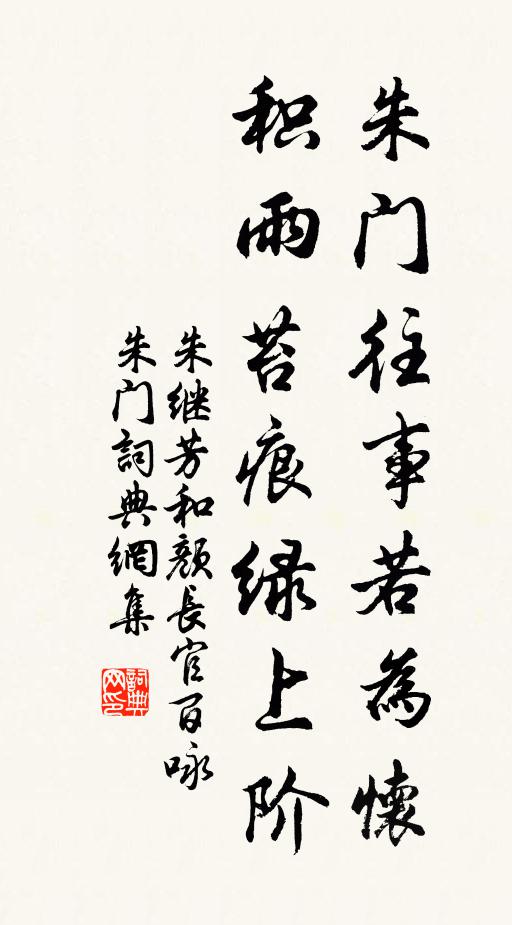 朱门往事若為懷
积雨苔痕绿上阶
朱继芳和颜長官百咏
朱门詞典網集
詞典网印